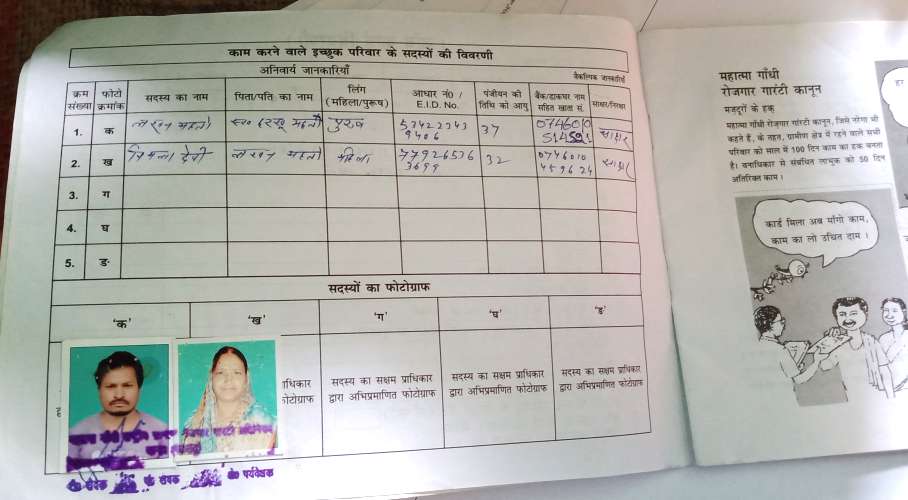 काम करने वाले इच्छुक परिवार के सदस्यों की विवरणी
अनिवार्य जानकारियाँ
वैकल्पिक जानकारियाँ
क्रम संख्या
फोटो क्रमांक
सदस्य का नाम
पिता/पति का नाम
लिंग (महिला/पुरूष)
आधार नं0 / E.I.D. No.
पंजीयन की तिथि को आयु
बैंक/डाकघर नाम सहित खाता सं.
साक्षर/निरक्षर
1. क लखन महतो स्व० महतो पुरुष 53422343 9406 37 0746010 साक्षर
2. ख देवी लखन महतो महिला 77926536 3699 32 0746010 459624 साक्षर
3. ग
4. घ
5. ङ
सदस्यों का फोटोग्राफ
'क' 'ख' 'ग' 'घ' 'ङ'
ाधिकार
फोटोग्राफ
सदस्य का सक्षम प्राधिकार
द्वारा अभिप्रमाणित फोटोग्राफ
सदस्य का सक्षम प्राधिकार
द्वारा अभिप्रमाणित फोटोग्राफ
सदस्य का सक्षम प्राधिकार
द्वारा अभिप्रमाणित फोटोग्राफ
पर्यवेक्षक
महात्मा गाँधी
रोजगार गारंटी कानून
मजदूरों के हक
महात्मा गाँधी रोजगार गारंटी कानून, जिसे नरेगा भी
कहते हैं, के तहत, ग्रामीण क्षेत्र में रहने वाले सभी
परिवार को साल में 100 दिन काम का हक बनता
है। वनाधिकार से संबंधित लाभुक को 50 दिन
अतिरिक्त काम।
कार्ड मिला अब माँगो काम,
काम का लो उचित दाम ।
हर